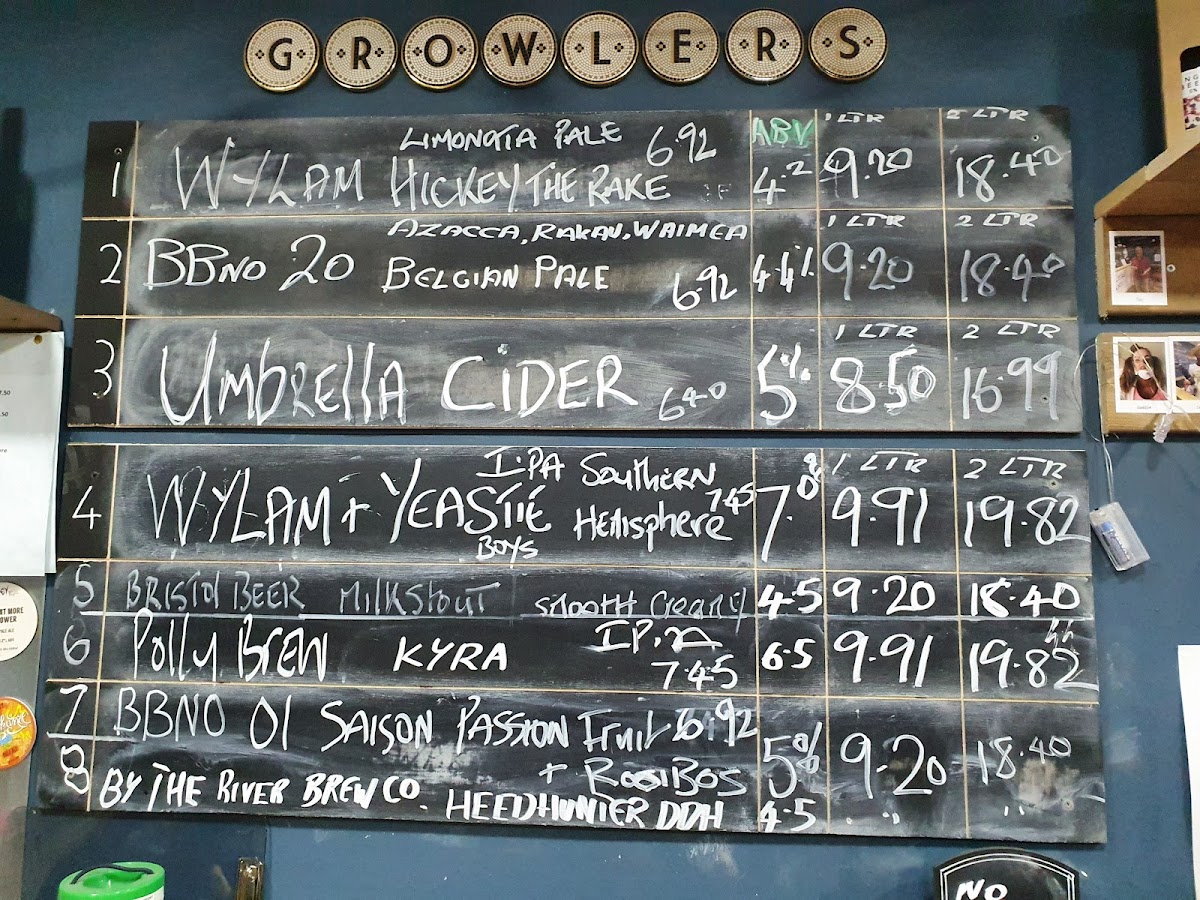 GROWLERS
LIMONATA PALE 6.92 ABV 1 LTR 2 LTR
1 WYLAM HICKEY THE RAKE 4.2 9.20 18.40
AZACCA, RAKAU, WAIMEA 1 LTR 2 LTR
2 BBNO 20 BELGIAN PALE 6.92 4.4% 9.20 18.40
1 LTR 2 LTR
3 UMBRELLA CIDER 6.40 5% 8.50 16.99
I.PA Southern 7.45 1 LTR 2 LTR
4 WYLAM + YEASTIE Hemisphere 7.0% 9.91 19.82
BOYS
5 BRISTOL BEER MILKSTOUT SMOOTH CREAMY 4.5 9.20 18.40
6 Polly BREW KYRA I.P.A 6.5 9.91 19.82
7.45
7 BBNO 01 SAISON PASSION FRUIT 6.92 5% 9.20 18.40
+ ROOIBOS
8 BY THE RIVER BREW CO. HEEDHUNTER DDH 4.5 " "
NO